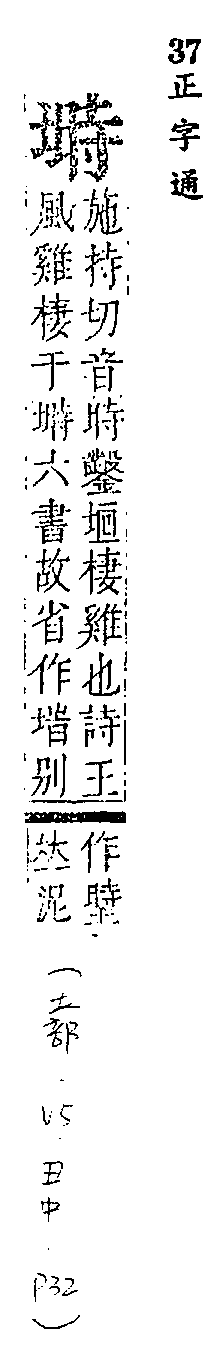 37正字通
塒
施持切音時鑿垣棲雞也詩王
風雞棲于塒六書故省作別
作
𠀤泥
(土部．V5．丑中．P32)